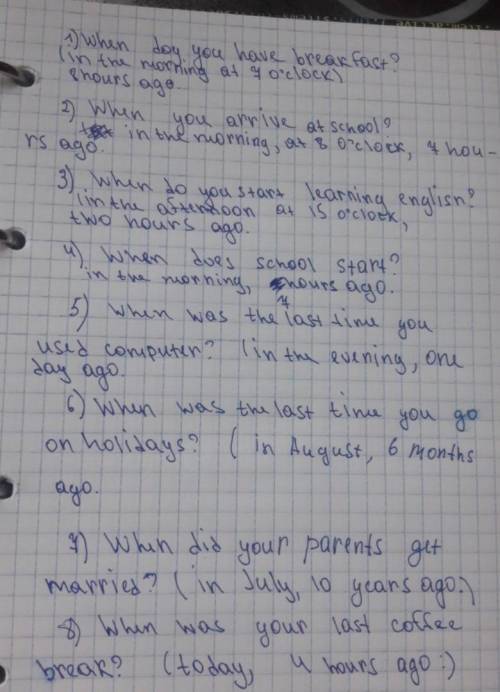 1) When doy you have breakfast?
(in the morning at 7 o'clock)
8 hours ago.
2) When you arrive at school?
in the morning, at 8 o'clock, 7 hou-
rs ago.
3) When do you start learning english?
(in the afternoon at 15 o'clock,
two hours ago.
4) When does school start?
in the morning, 7 hours ago.
5) When was the last time you
used computer? (in the evening, one
day ago.
6) When was the last time you go
on holidays? (in August, 6 months
ago.
7) When did your parents get
married? (in July, 10 years ago:)
8) When was your last coffee
break? (today, 4 hours ago:)